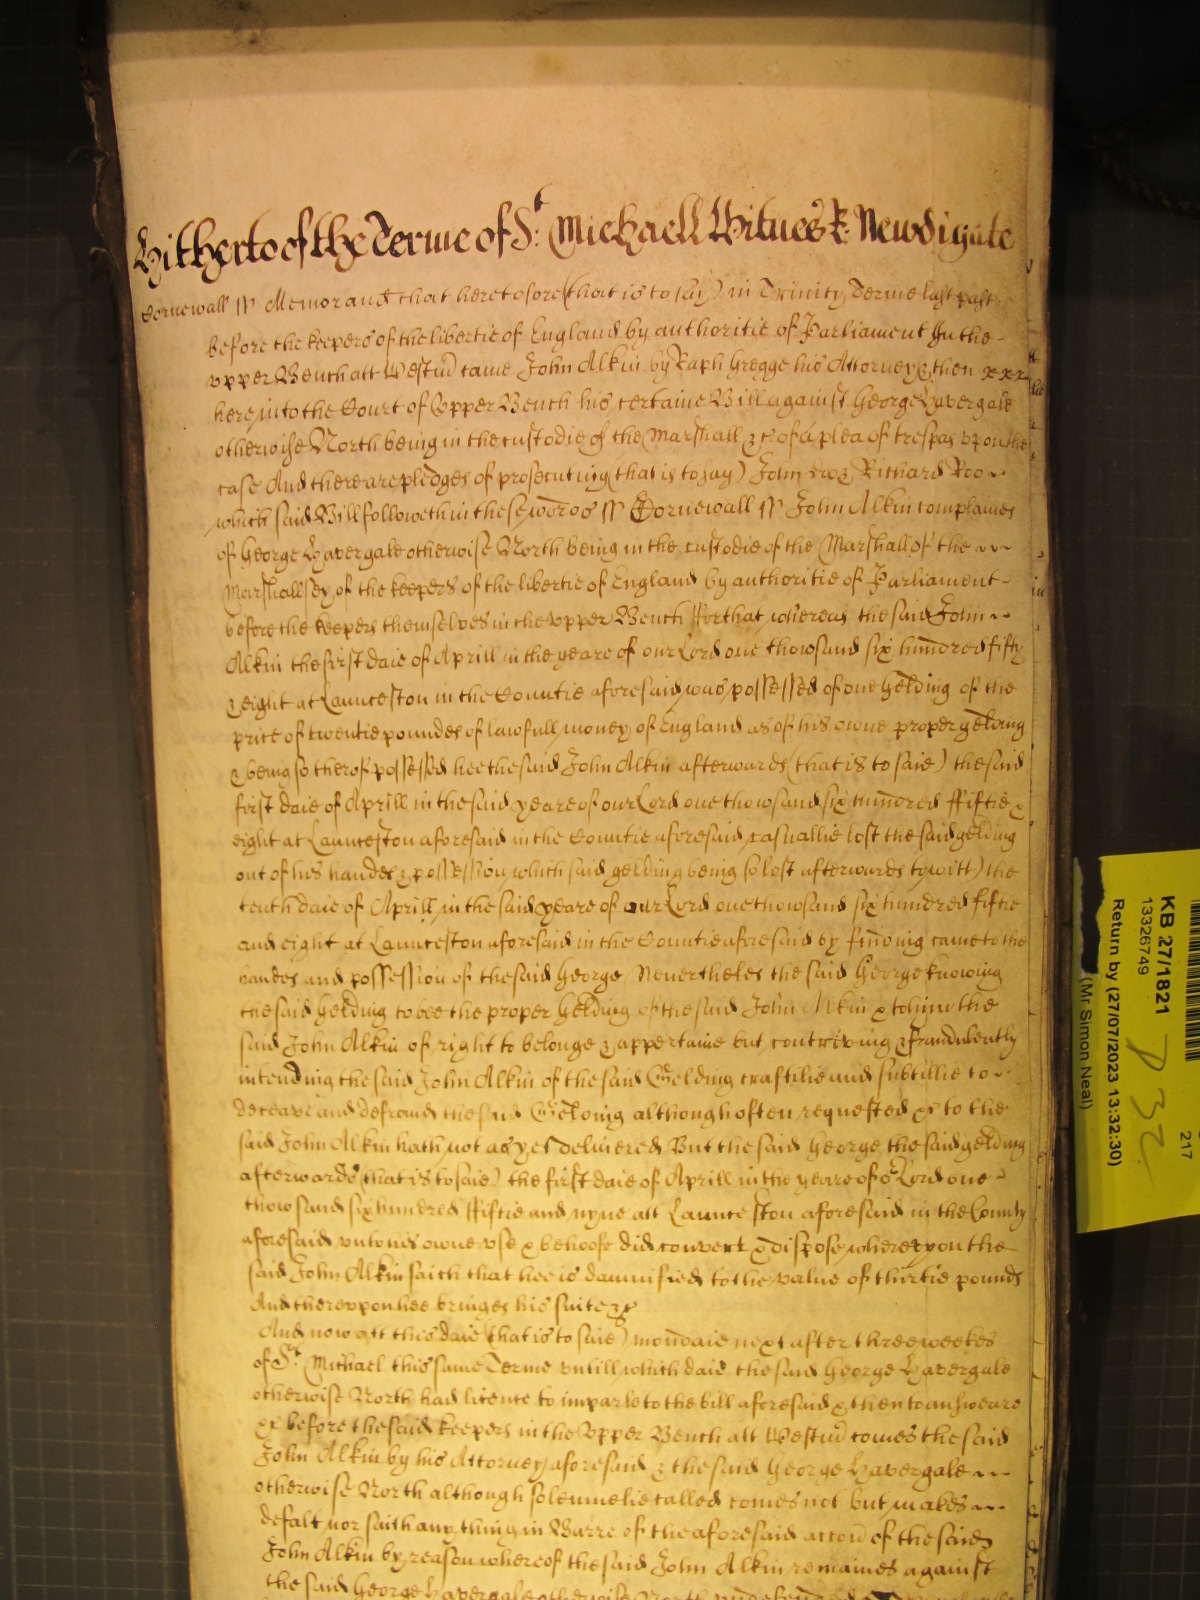 Hitherto of the Terme of St: Michaell Witnes R: Newdigate
Cornewall ss Memorand that heretofore (that is to say) in Trinity Terme last past
before the keepers of the libertie of England by authoritie of Parliament In the
vpper Bench att Westm came John Alkin by Raph Gregge his Attorney & then
here into the Court of Vpper Bench his certaine Bill against George Havergale
otherwise North being in the custodie of the Marshall &c of a plea of trespas vpon the
case And there are pledges of prosecuting (that is to say) John & Richard Roo
which said Bill followeth in these words ss Cornewall ss John Alkin complaines
of George Havergale otherwise North being in the custodie of the Marshall of the
Marshallsey of the keepers of the libertie of England by authoritie of Parliament
before the keepers themselves in the vpper Bench ffor that whereas the said John
Alkin the first daie of Aprill in the yeare of our Lord one thowsand six hundred fifty
& eight at Launceston in the Countie aforesaid was possessed of one gelding of the
price of twentie poundes of lawfull money of England as of his owne proper gelding
& being so therof possessed hee the said John Alkin afterwards (that is to saie) the said
first daie of Aprill in the said yeare of our Lord one thowsand six hundred ffiftie &
eight at Launceston aforesaid in the Countie aforesaid casuallie lost the said gelding
out of his handes & possession which said gelding being so lost afterwards to witt) the
tenth daie of Aprill in the said yeare of our Lord one thowsand six hundred fiftie
and eight at Launceston aforesaid in the Countie aforesaid by finding came to the
handes and possession of the said George Neverthelesse the said George knowing
the said gelding to bee the proper gelding of the said John Alkin & to him the
said John Alkin of right to belonge & appertaine but contriving & fraudulently
intending the said John Alkin of the said Gelding craftilie and subtillie to
deceave and defraud the said Gelding although often requested &c to the
said John Alkin hath not as yet delivered But the said George the said gelding
afterwards (that is to saie) the first daie of Aprill in the yeare of or Lord one
thowsand six hundred ffiftie and nyne att Launceston aforesaid in the County
aforesaid vnto his owne vse & behoofe did convert & dispose wherevpon the
said John Alkin saith that hee is damnified to the value of thirtie pounds
And therevpon hee bringes his suite &c
And now att this daie (that is to saie) mondaie next after three weekes
of St. Michael this same Terme vntill which daie the said George Havergale
otherwise North had licence to imparle to the bill aforesaid & then to answeare
&c before the said keepers in the Vpper Bench att Westm comes the said
John Alkin by his Attorney aforesaid & the said George Havergale
otherwise North although solemnelie called comes not but makes
defalt nor saith any thing in Barre of the aforesaid accon of the said
John Alkin by reason whereof the said John Alkin remaines against
the said George Havergale otherwise North vndefended
KB 27/1821
13326749
Return by (27/07/2023 13:32:30)
(Mr Simon Neal)
217